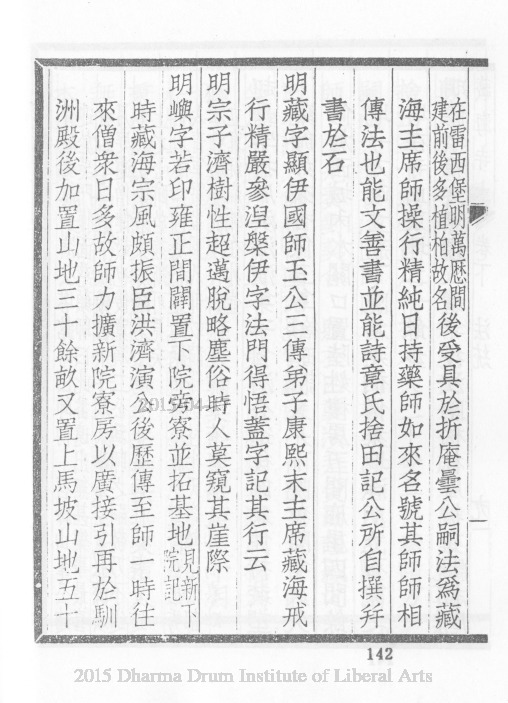 在雷西堡明萬曆間
建前後多植柏故名後受具於折庵曇公嗣法爲藏
海主席師操行精純日持藥師如來名號其師師相
傳法也能文善書並能詩章氏捨田記公所自撰并
書於石
明藏字顯伊國師玉公三傳弟子康熙末主席藏海戒
行精嚴參涅槃伊字法門得悟蓋字記其行云
明宗子濟樹性超邁脫略塵俗時人莫窺其崖際
明嶼字若印雍正間闢置下院旁寮並拓基地見新下
院記
時藏海宗風頗振臣洪濟演公後歷傳至師一時往
來僧衆日多故師力擴新院寮房以廣接引再於馴
洲殿後加置山地三十餘畝又置上馬坡山地五十
142
2015 Dharma Drum Institute of Liberal Arts